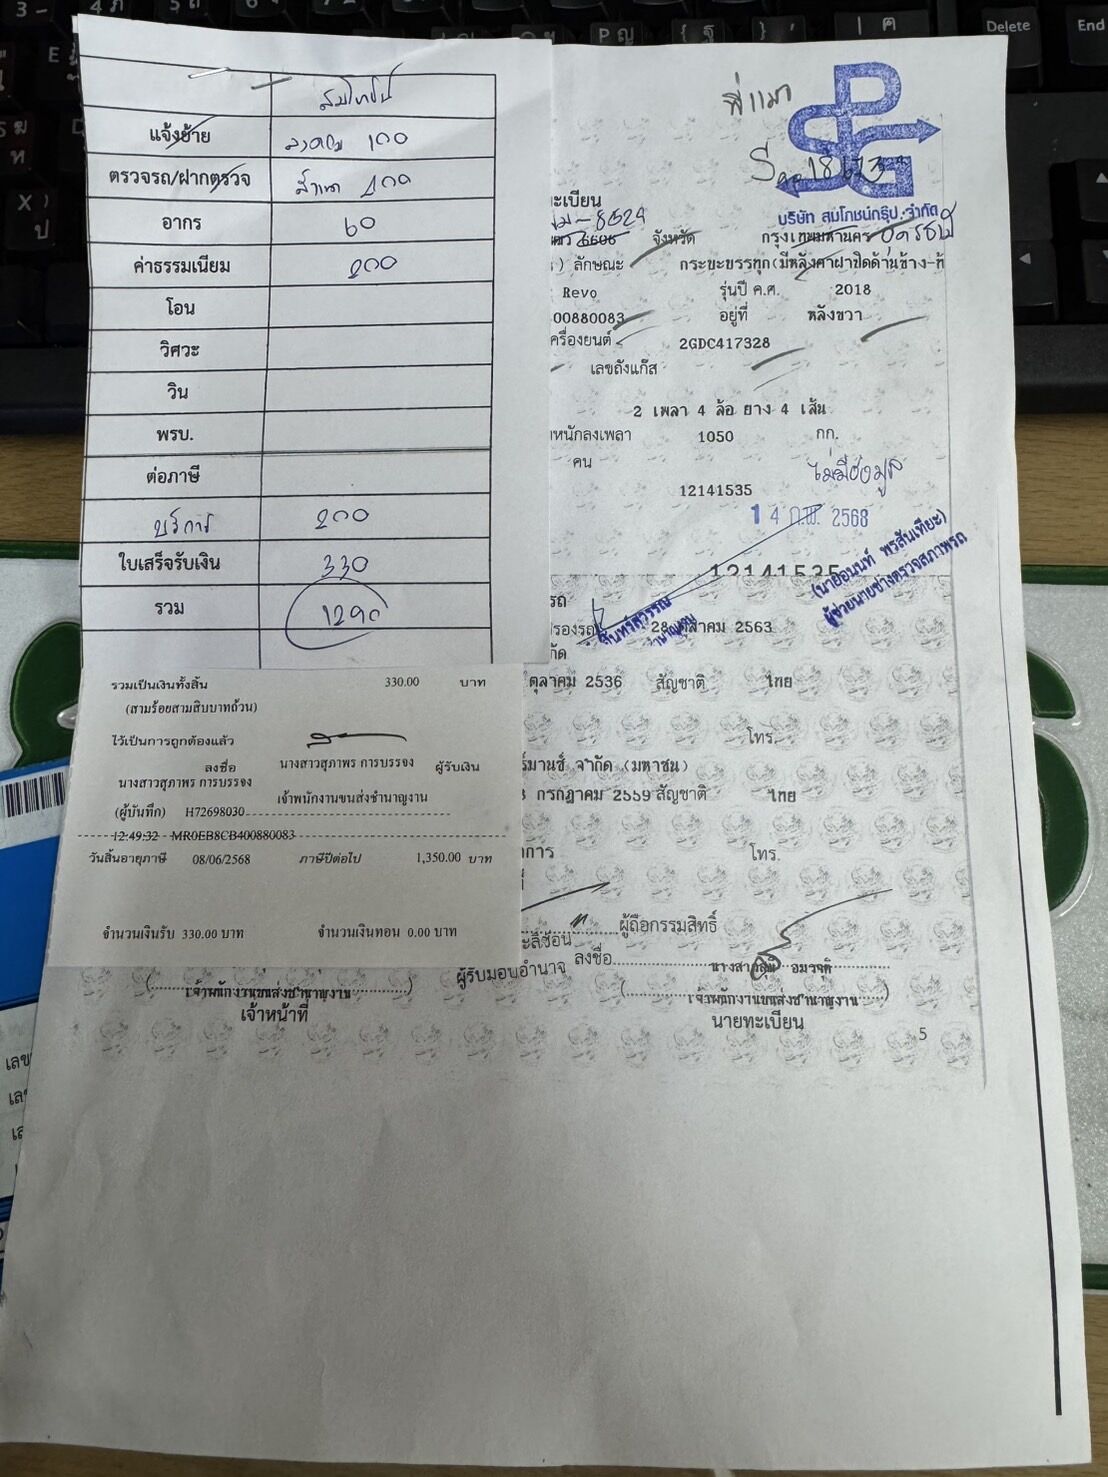 สมโภชน์
แจ้งย้าย 100
ตรวจรถ/ฝากตรวจ
อากร 60
ค่าธรรมเนียม 200
โอน
วิศวะ
วิน
พรบ.
ต่อภาษี
บริการ 200
ใบเสร็จรับเงิน 330
รวม 1290
รวมเป็นเงินทั้งสิ้น 330.00 บาท
(สามร้อยสามสิบบาทถ้วน)
ไว้เป็นการถูกต้องแล้ว
ลงชื่อ นางสาวสุภาพร การบรรจง ผู้รับเงิน
นางสาวสุภาพร การบรรจง
เจ้าพนักงานขนส่งชำนาญงาน
(ผู้บันทึก) H72698030
12:49:32 MR0EB8CB400880083
วันสิ้นอายุภาษี 08/06/2568 ภาษีปีต่อไป 1,350.00 บาท
จำนวนเงินรับ 330.00 บาท จำนวนเงินทอน 0.00 บาท
พี่แมว
PSG
บริษัท สมโภชน์กรุ๊ป จำกัด
ทะเบียน
6606 จังหวัด กรุงเทพมหานคร อุดรธานี
) ลักษณะ กระบะบรรทุก(มีหลังคาฝาปิดด้านข้าง-ท้
Revo รุ่นปี ค.ศ. 2018
00880083 อยู่ที่ หลังขวา
เครื่องยนต์ 2GDC417328
เลขถังแก๊ส
2 เพลา 4 ล้อ ยาง 4 เส้น
หนักลงเพลา 1050 กก.
คน ไม่มีข้อมูล
12141535
14 ก.พ. 2568
12141535
(นายอนนท์ พรสันเทียะ)
ผู้ช่วยนายช่างตรวจสภาพรถ
รถ
28 ตุลาคม 2563
ตุลาคม 2536 สัญชาติ ไทย
โทร.
จำกัด (มหาชน)
กรกฎาคม 2559 สัญชาติ ไทย
โทร.
ผู้ถือกรรมสิทธิ์
ผู้รับมอบอำนาจ ลงชื่อ
(เจ้าพนักงานขนส่งชำนาญงาน) (เจ้าพนักงานขนส่งชำนาญงาน)
เจ้าหน้าที่ นายทะเบียน
5
Delete
End